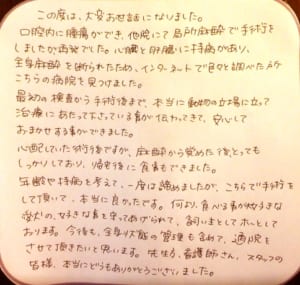 この度は、大変お世話になりました。
口腔内に腫瘍ができ、他院にて局所麻酔で手術を
しましたが再発でした。心臓と肝臓に持病があり、
全身麻酔を断られたため、インターネットで色々と調べた所
こちらの病院を見つけました。
最初の検査から手術後まで、本当に動物の立場に立って
治療にあたって下さっている事が伝わってきて、安心して
おまかせする事ができました。
心配していた術後ですが、麻酔から覚めた後、とっても
しっかりしており、帰宅後に食事もできました。
年齢や持病を考えて、一度は諦めましたが、こちらで手術を
して頂いて、本当に良かったです。何より、食べる事が大好きな
愛犬の、大好きな事を守ってあげられて、飼い主としてホッとして
おります。今後も、全身状態の管理も含めて、通院を
させて頂きたいと思います。先生方、看護師さん、スタッフの
皆様、本当にどうもありがとうございました。